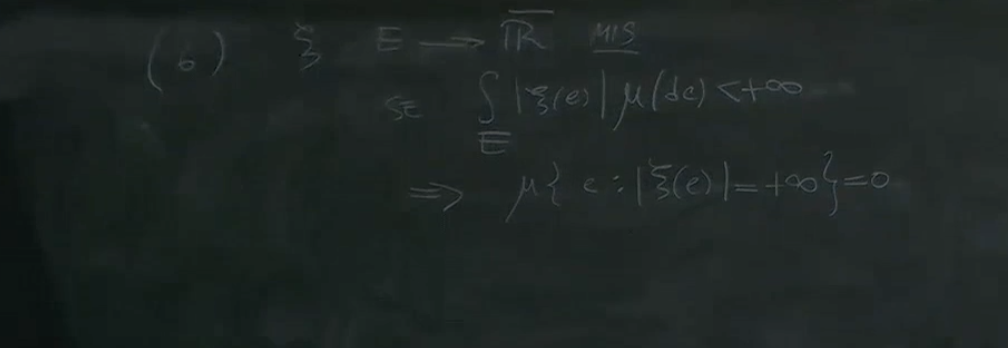 (6) ξ E → ℝ̅ MIS
SE ∫_E |ξ(e)| μ(de) < +∞
⇒ μ{ e : |ξ(e)| = +∞} = 0